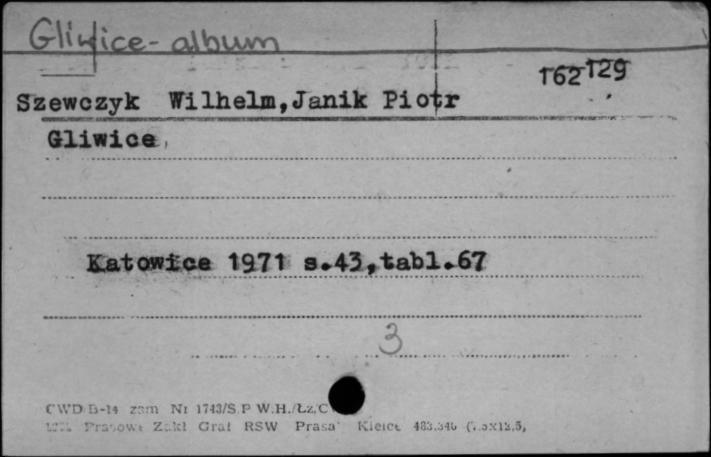 Gliwice - album
162129
Szewczyk Wilhelm, Janik Piotr
Gliwice
Katowice 1971 s.43,tabl.67
3
CWD B-14 zam Nr 1743/S.P W.H./Łz.C
Prasowe Zakł Graf RSW Prasa Kielce